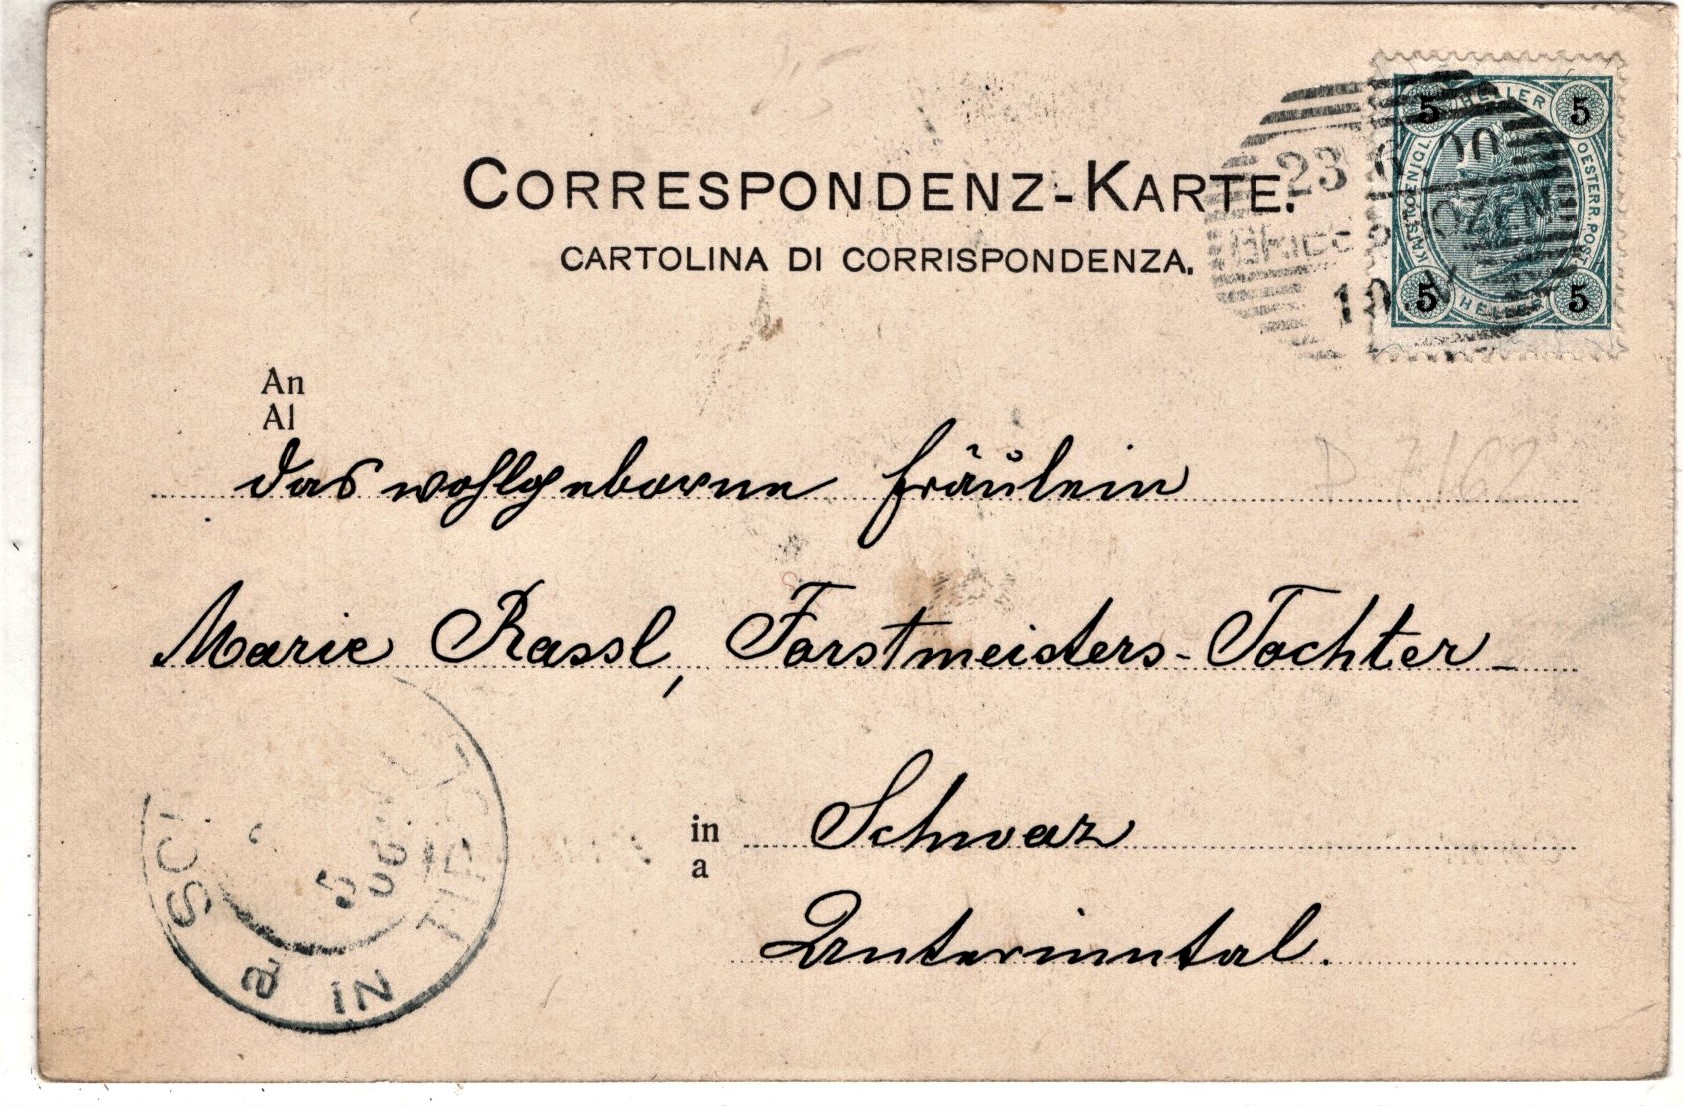 CORRESPONDENZ-KARTE.
CARTOLINA DI CORRISPONDENZA.
5 HELLER 5
KAIS. KOENIGL. OESTERR. POST
5 HELLER 5
23 6 00
GRIES B. BOZEN
10.V
An
Al
das wohlgeborne Fräulein
D 7/62
Marie Rassl, Forstmeisters-Tochter-
in
a
Schwaz
Unterinntal.
SCH
IN TIROL
5
00